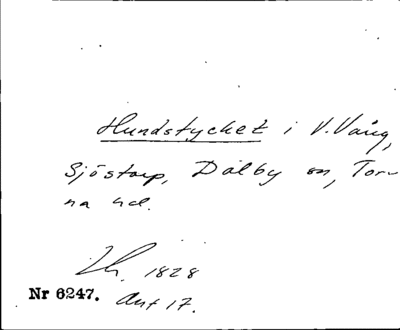 Hundstycket i V. Vång,
Sjöstorp, Dalby sn, Tor-
na hd.
Lh. 1828
Nr 6247. Akt 17.